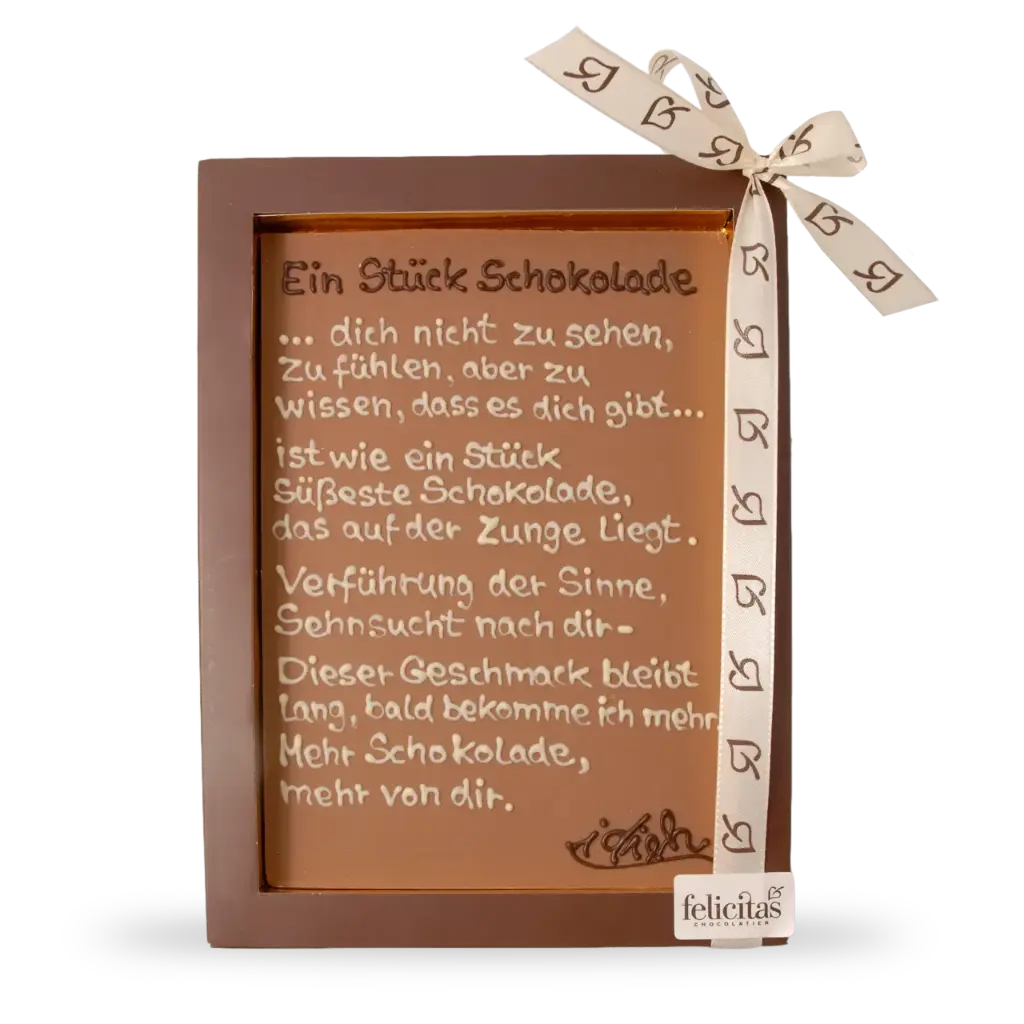 Ein Stück Schokolade
... dich nicht zu sehen,
zu fühlen, aber zu
wissen, dass es dich gibt...
ist wie ein Stück
süßeste Schokolade,
das auf der Zunge liegt.
Verführung der Sinne,
Sehnsucht nach dir-
Dieser Geschmack bleibt
lang, bald bekomme ich mehr.
Mehr Schokolade,
mehr von dir.
felicitas
CHOCOLATIER